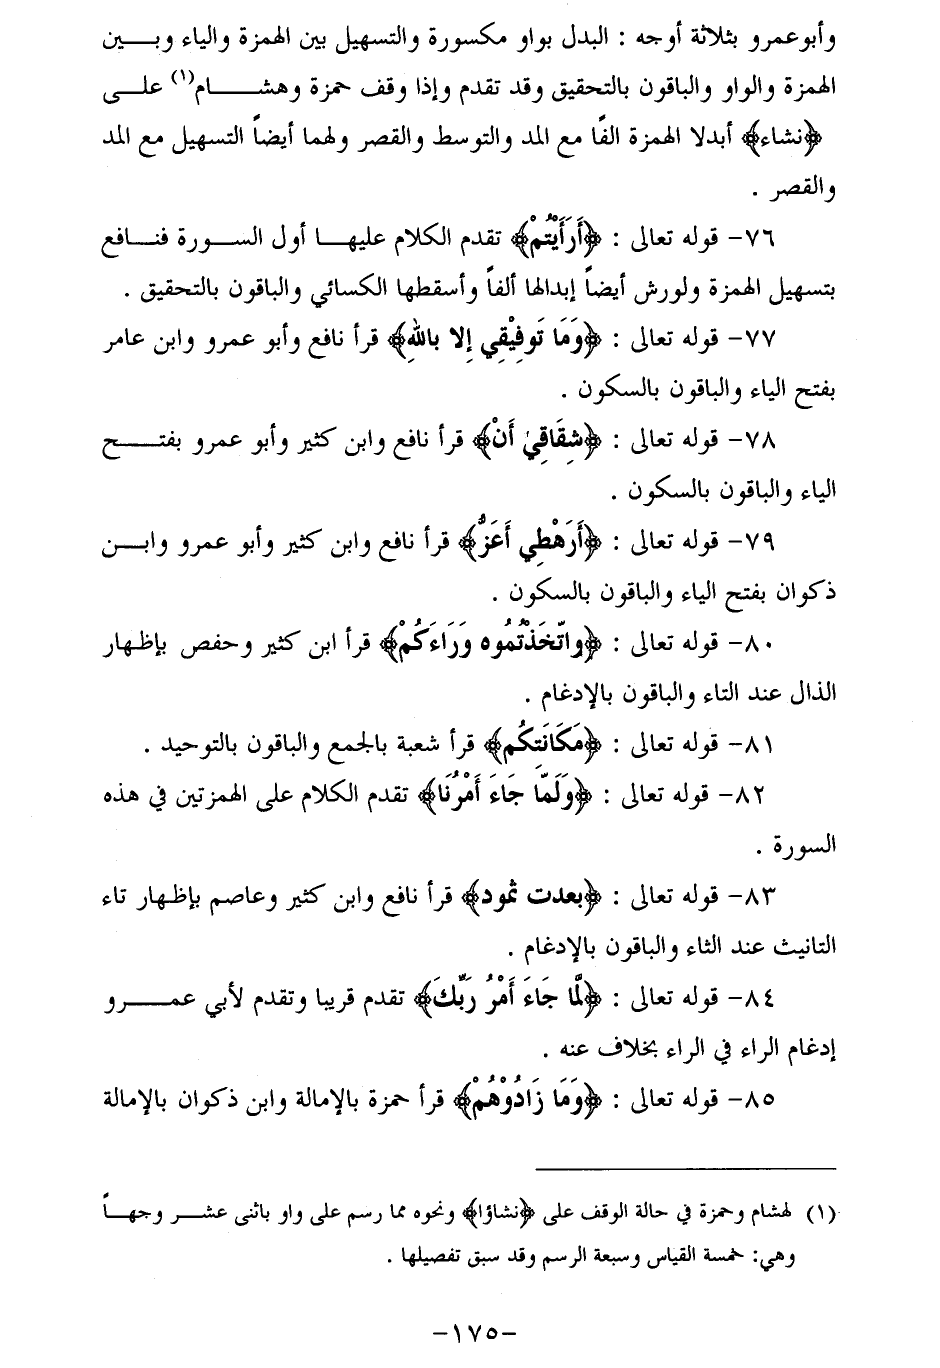 وأبوعمرو بثلاثة أوجه : البدل بواو مكسورة والتسهيل بين الهمزة والياء وبـــين
الهمزة والواو والباقون بالتحقيق وقد تقدم وإذا وقف حمزة وهشـــــام(١) علـــى
﴿نشاء﴾ أبدلا الهمزة الفًا مع المد والتوسط والقصر ولهما أيضاً التسهيل مع المد
والقصر .
٧٦- قوله تعالى : ﴿أَرَأَيْتُمْ﴾ تقدم الكلام عليهـــا أول الســـورة فنـــافع
بتسهيل الهمزة ولورش أيضاً إبدالها ألفاً وأسقطها الكسائي والباقون بالتحقيق .
٧٧- قوله تعالى : ﴿وَمَا تَوفِيْقِي إِلا بالله﴾ قرأ نافع وأبو عمرو وابن عامر
بفتح الياء والباقون بالسكون .
٧٨- قوله تعالى : ﴿شِقَاقِيْ أَنْ﴾ قرأ نافع وابن كثير وأبو عمرو بفتـــــح
الياء والباقون بالسكون .
٧٩- قوله تعالى : ﴿أَرَهْطِي أَعَزُّ﴾ قرأ نافع وابن كثير وأبو عمرو وابـــن
ذكوان بفتح الياء والباقون بالسكون .
٨٠- قوله تعالى : ﴿واتّخَذْتُمُوه وَرَاءَكُمْ﴾ قرأ ابن كثير وحفص بإظـهار
الذال عند التاء والباقون بالإدغام .
٨١- قوله تعالى : ﴿مَكَانَتِكُم﴾ قرأ شعبة بالجمع والباقون بالتوحيد .
٨٢- قوله تعالى : ﴿وَلَمّا جَاءَ أَمْرُنَا﴾ تقدم الكلام على الهمزتين في هذه
السورة .
٨٣- قوله تعالى : ﴿بعدت ثمود﴾ قرأ نافع وابن كثير وعاصم بإظـهار تاء
التانيث عند الثاء والباقون بالإدغام .
٨٤- قوله تعالى : ﴿لَّا جَاءَ أَمْرُ رَبِّكَ﴾ تقدم قريبا وتقدم لأبي عمـــــرو
إدغام الراء في الراء بخلاف عنه .
٨٥- قوله تعالى : ﴿وَمَا زَادُوْهُمْ﴾ قرأ حمزة بالإمالة وابن ذكوان بالإمالة
(١) لهشام وحمزة في حالة الوقف على ﴿نشاؤا﴾ ونحوه مما رسم على واو باثنى عشـــر وجهـــاً
وهي: خمسة القياس وسبعة الرسم وقد سبق تفصيلها .
-١٧٥-